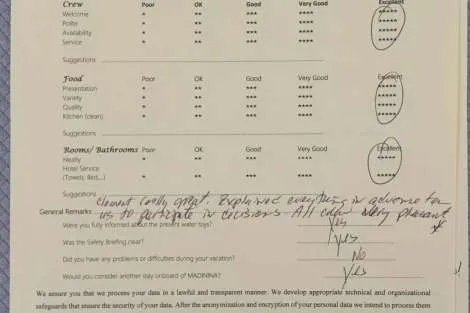 Crew Poor OK Good Very Good Excellent
Welcome * ** *** **** *****
Polite * ** *** **** *****
Availability * ** *** **** *****
Service * ** *** **** *****
Suggestions
Food Poor OK Good Very Good Excellent
Presentation * ** *** **** *****
Variety * ** *** **** *****
Quality * ** *** **** *****
Kitchen (clean) * ** *** **** *****
Suggestions
Rooms/ Bathrooms Poor OK Good Very Good Excellent
Neatly * ** *** **** *****
Hotel Service
(Towels, Bed,...) * ** *** **** *****
Suggestions
Clement really great. Explained everything in advance for
General Remarks us to participate in decisions All crew very pleasant
Were you fully informed about the present water toys? Yes
Was the Safety Briefing clear? Yes
Did you have any problems or difficulties during your vacation? No
Would you consider another stay onboard of MADININA? Yes
We assure you that we process your data in a lawful and transparent manner. We develop appropriate technical and organizational
safeguards that ensure the security of your data. After the anonymization and encryption of your personal data we intend to process them